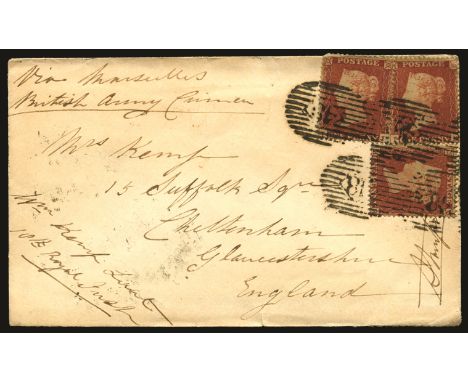 Via Marseilles
British Army Crimea
POSTAGE POSTAGE
Mrs Kemp
15 Suffolk Sqre
Cheltenham
Gloucestershire
England
Wm Kemp Lieut
18th Royal Irish